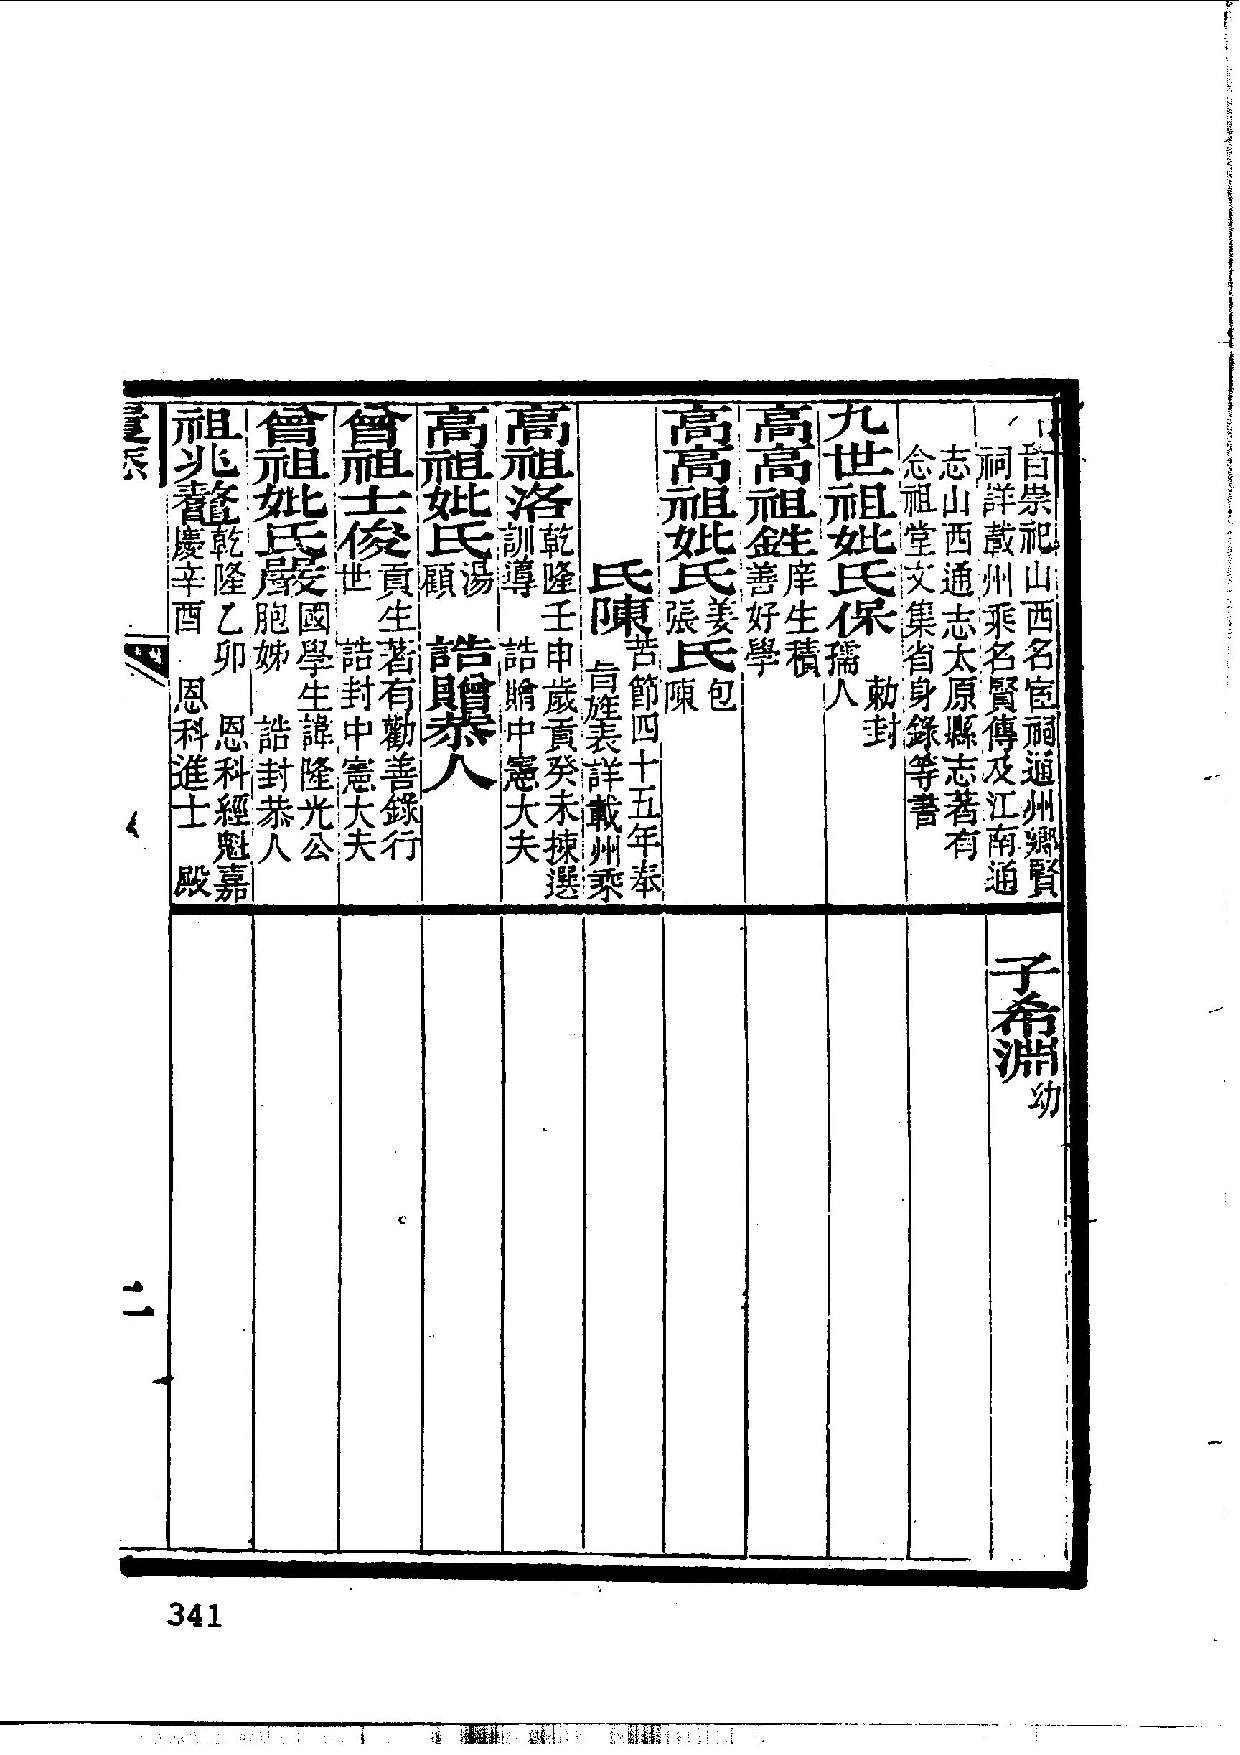 旨崇祀山西名宦祠通州鄉賢
祠詳載州乘名賢傳及江南通
志山西通志太原縣志著有
念祖堂文集省身錄等書
九世祖妣氏保 勅封
孺人
高高祖銈庠生積
善好學
高高祖妣氏姜張氏包陳
氏陳苦節四十五年奉
旨旌表詳載州乘
高祖洛乾隆壬申歲貢癸未揀選
訓導 誥贈中憲大夫
高祖妣氏湯顧 誥贈恭人
曾祖士俊貢生著有勸善錄行
世 誥封中憲大夫
曾祖妣氏嚴國學生諱隆光公
胞姊 誥封恭人
祖兆鼇乾隆乙卯 恩科經魁嘉
慶辛酉 恩科進士 殿
子希淵幼
二
341